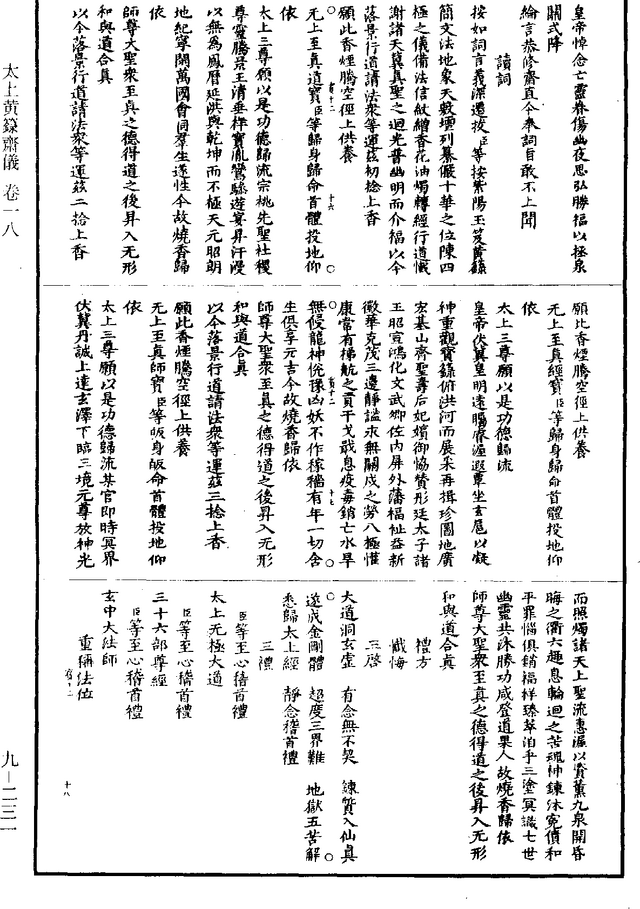 太上黄籙齋儀 卷一八
九—二三一
皇帝悼念亡靈眷傷幽夜思弘勝福以拯泉
關式降
綸言恭修齋直今奉詞旨敢不上聞
讀詞
按如詞言義深遷拔臣等按紫陽玉笈黄籙
簡文法地象天數壇列纂儼十華之位陳四
極之儀備法信紋繒香花油燭轉經行道懺
謝諸天冀真聖之迴光普幽明而介福以今
落景行道請法衆等運茲初捻上香
願此香煙騰空徑上供養
无上至真道寶臣等歸身歸命首體投地仰
依
太上三尊願以是功德歸流宗祧先聖社稷
尊靈騰景玉清垂祥寶胤鸞驂遊宴昇汗漫
以無爲鳳曆延洪與乾坤而不極天元昭朗
地紀寧閑萬國會同羣生遂性今故燒香歸
依
師尊大聖衆至真之德得道之後昇入无形
和與道合真
以今落景行道請法衆等運茲二捻上香
願此香煙騰空徑上供養
无上至真經寶臣等歸身歸命首體投地仰
依
太上三尊願以是功德歸流
皇帝伏冀皇明遠騰睿渥遐覃坐玄扈以凝
神重觀寶籙俯洪河而展采再揖珍圖地廣
宏基山齊聖壽后妃嬪御恊贊彤廷太子諸
王昭宣鴻化文武卿佐内屏外藩福祉益新
徽華克茂三邊靜謐永無關戍之勞八極懽
康當有梯航之貢干戈戢息疫毒銷亡水旱
無侵龍神恱豫凶妖不作稼穡有年一切含
生俱享元吉今故燒香歸依
師尊大聖衆至真之德得道之後昇入无形
和與道合真
以今落景行道請法衆等運茲三捻上香
願此香煙騰空徑上供養
无上至真師寶臣等皈身皈命首體投地仰
依
太上三尊願以是功德歸流某官即時冥界
伏冀丹誠上達玄澤下臨三境元尊放神光
而照燭諸天上聖流惠渥以資薰九泉開昏
晦之衢六趣息輪迴之苦魂神鍊沐冤債和
平罪惱俱銷福祥臻萃洎乎三塗冥識七世
幽靈共沐勝功咸登道果人故燒香歸依
師尊大聖衆至真之德得道之後昇入无形
和與道合真
禮方
懺悔
三啓
大道洞玄虚 有念無不契 鍊質入仙真
遂成金剛體 超度三界難 地獄五苦解
悉歸太上經 靜念稽首禮
三禮
臣等至心稽首禮
太上无極大道
臣等至心稽首禮
三十六部尊經
臣等至心稽首禮
玄中大法師
重稱法位
十六
十七
十八